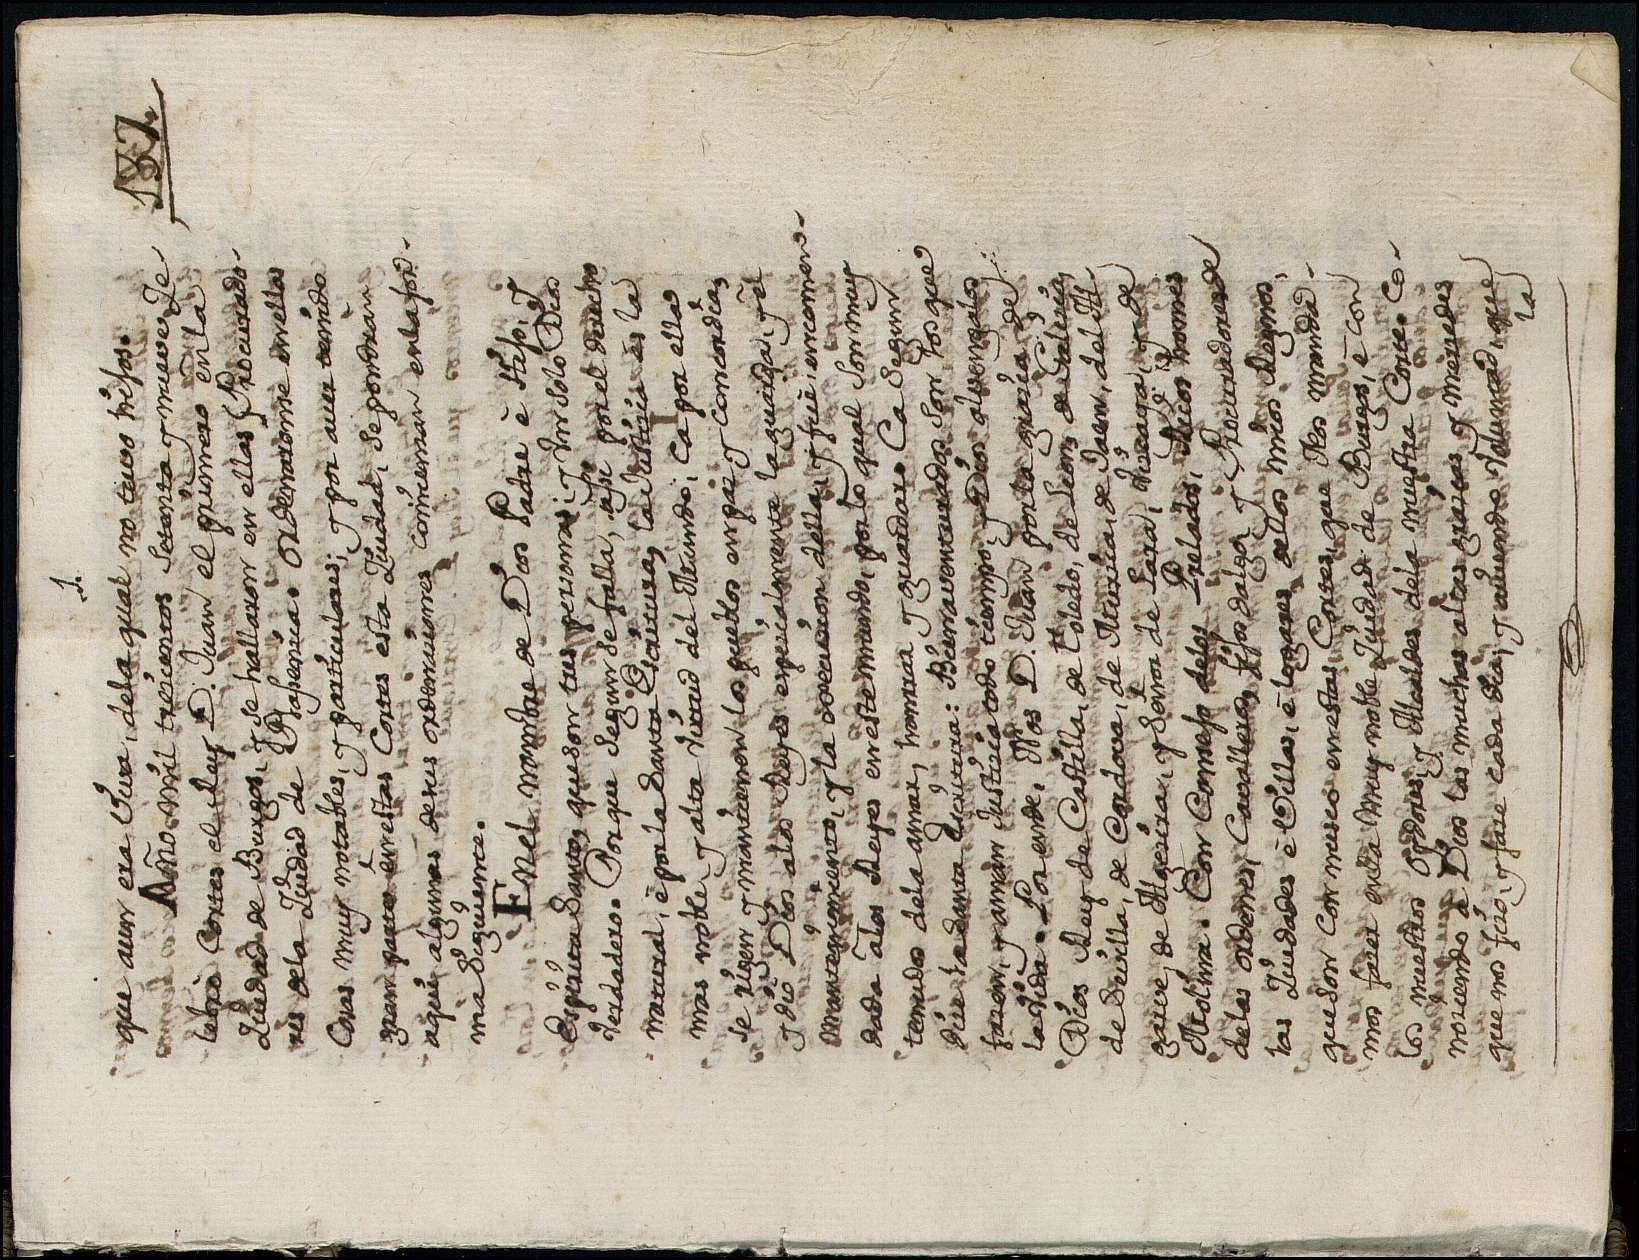 .1.
137.
que aun era viva, dela qual no tuvo hijos.
Año mil trecientos setenta y nueve, Ze
lebró Cortes el Rey D. Juan el primero en la
Ziudad de Burgos, y se hallaron en ellas Procurado-
res dela Ziudad de Plasencia. Ordenaronse en ellas
Cosas muy notables, y particulares; y por auer tenido
gran parte en estas Cortes esta Ziudad, se pondran
aqui algunas de sus ordenaciones comienzan en la for-
ma Siguiente.
Enel nombre de Dios Padre è Hijo, y
Espiritu Santo, que son tres personas, y un solo Dios
Verdadero. Porque Segun se falla, assi por el derecho
natural, è por la Santa Escritura, la Justicia es la
mas noble y alta virtud del Mundo; Ca por ella
se rigen y mantienen los pueblos en paz y concordia,
y dio Dios alos Reyes especialmente la guarda, y el
mantenimiento, y la correcion della, y fuè encomen-
dada àlos Reyes en este mundo, por lo qual son muy
tenudos dela amar, honrrar y guardar. Ca segun
dize la Santa Escritura: Bienaventurados son los que
facen, y aman Justicia todo tiempo, y Dios aluengales
la vida. Por ende, Nos D. Juan por la gracia de
Dios Rey de Castilla, de Toledo, de Leon, de Galicia,
de Sevilla, de Cordova, de Murcia, de Jaen, del Al-
garve, de Algecira, y Señor de Lara, Vizcaya, y de
Molina. Con Consejo delos Prelados, Ricos homes
delas ordenes, Cavalleros, Fijos dalgo, y Procuradores de
las Ziudades è Villas, è logares dellos mios Regnos,
que son con nusco en estas Cortes, que Nos manda-
mos facer en la Muy noble Ziudad de Burgos, è con
los nuestros oydores, y Alcaldes dela nuestra Corte. Co-
nociendo à Dios las muchas altas gracias y mercedes
que nos fizo, y face cada dia, y auiendo voluntad, que
la